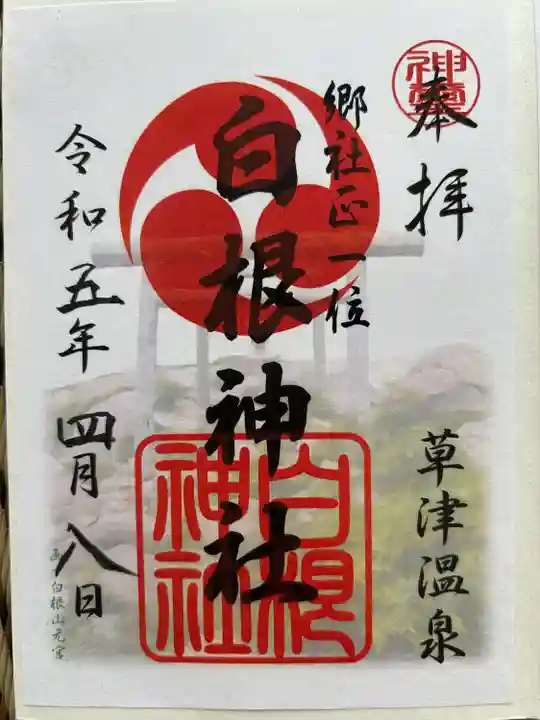 奉拝
神璽
草津温泉
郷社正一位
白根神社
白根神社
令和五年四月八日
白根山元宮